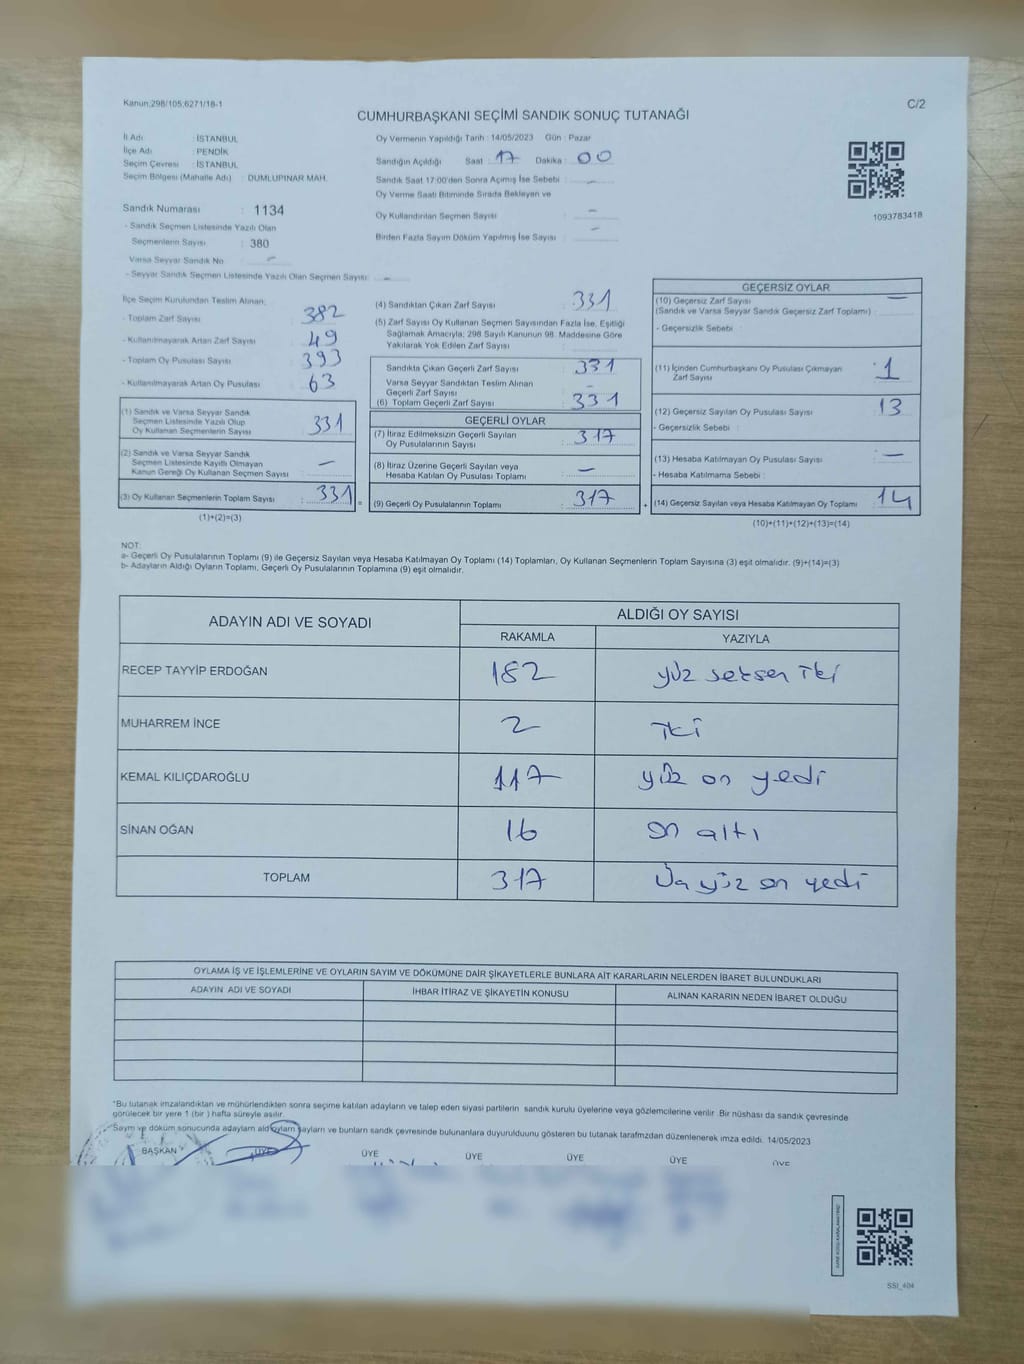 Kanun:298/105;6271/18-1
C/2
CUMHURBAŞKANI SEÇİMİ SANDIK SONUÇ TUTANAĞI
İl Adı : İSTANBUL
İlçe Adı : PENDİK
Seçim Çevresi : İSTANBUL
Seçim Bölgesi (Mahalle Adı) : DUMLUPINAR MAH.
Oy Vermenin Yapıldığı Tarih : 14/05/2023 Gün : Pazar
Sandığın Açıldığı Saat : 17 Dakika : 00
Sandık Saat 17:00'den Sonra Açımış İse Sebebi : –
Oy Verme Saati Bitiminde Sırada Bekleyen ve
Oy Kullandırılan Seçmen Sayısı : –
Birden Fazla Sayım Döküm Yapılmış İse Sayısı : –
1093783418
Sandık Numarası : 1134
- Sandık Seçmen Listesinde Yazılı Olan
Seçmenlerin Sayısı : 380
Varsa Seyyar Sandık No : –
- Seyyar Sandık Seçmen Listesinde Yazılı Olan Seçmen Sayısı: –
İlçe Seçim Kurulundan Teslim Alınan;
- Toplam Zarf Sayısı : 382
- Kullanılmayarak Artan Zarf Sayısı : 49
- Toplam Oy Pusulası Sayısı : 393
- Kullanılmayarak Artan Oy Pusulası : 63
(1) Sandık ve Varsa Seyyar Sandık
Seçmen Listesinde Yazılı Olup
Oy Kullanan Seçmenlerin Sayısı : 331
(2) Sandık ve Varsa Seyyar Sandık
Seçmen Listesinde Kayıtlı Olmayan
Kanun Gereği Oy Kullanan Seçmen Sayısı : –
(3) Oy Kullanan Seçmenlerin Toplam Sayısı : 331
(1)+(2)=(3)
(4) Sandıktan Çıkan Zarf Sayısı : 331
(5) Zarf Sayısı Oy Kullanan Seçmen Sayısından Fazla İse, Eşitliği
Sağlamak Amacıyla; 298 Sayılı Kanunun 98. Maddesine Göre
Yakılarak Yok Edilen Zarf Sayısı :
Sandıkta Çıkan Geçerli Zarf Sayısı : 331
Varsa Seyyar Sandıktan Teslim Alınan
Geçerli Zarf Sayısı : –
(6) Toplam Geçerli Zarf Sayısı : 331
GEÇERLİ OYLAR
(7) İtiraz Edilmeksizin Geçerli Sayılan
Oy Pusulalarının Sayısı : 317
(8) İtiraz Üzerine Geçerli Sayılan veya
Hesaba Katılan Oy Pusulası Toplamı : –
(9) Geçerli Oy Pusulalarının Toplamı : 317
GEÇERSİZ OYLAR
(10) Geçersiz Zarf Sayısı : –
(Sandık ve Varsa Seyyar Sandık Geçersiz Zarf Toplamı)
- Geçersizlik Sebebi :
(11) İçinden Cumhurbaşkanı Oy Pusulası Çıkmayan
Zarf Sayısı : 1
(12) Geçersiz Sayılan Oy Pusulası Sayısı : 13
- Geçersizlik Sebebi :
(13) Hesaba Katılmayan Oy Pusulası Sayısı : –
- Hesaba Katılmama Sebebi :
(14) Geçersiz Sayılan veya Hesaba Katılmayan Oy Toplamı : 14
(10)+(11)+(12)+(13)=(14)
NOT:
a- Geçerli Oy Pusulalarının Toplamı (9) ile Geçersiz Sayılan veya Hesaba Katılmayan Oy Toplamı (14) Toplamları, Oy Kullanan Seçmenlerin Toplam Sayısına (3) eşit olmalıdır. (9)+(14)=(3)
b- Adayların Aldığı Oyların Toplamı, Geçerli Oy Pusulalarının Toplamına (9) eşit olmalıdır.
ADAYIN ADI VE SOYADI ALDIĞI OY SAYISI
RAKAMLA YAZIYLA
RECEP TAYYİP ERDOĞAN 182 yüz seksen iki
MUHARREM İNCE 2 iki
KEMAL KILIÇDAROĞLU 117 yüz on yedi
SİNAN OĞAN 16 on altı
TOPLAM 317 Üç yüz on yedi
OYLAMA İŞ VE İŞLEMLERİNE VE OYLARIN SAYIM VE DÖKÜMÜNE DAİR ŞİKAYETLERLE BUNLARA AİT KARARLARIN NELERDEN İBARET BULUNDUKLARI
ADAYIN ADI VE SOYADI İHBAR İTİRAZ VE ŞİKAYETİN KONUSU ALINAN KARARIN NEDEN İBARET OLDUĞU
*Bu tutanak imzalandıktan ve mühürlendikten sonra seçime katılan adayların ve talep eden siyasi partilerin sandık kurulu üyelerine veya gözlemcilerine verilir. Bir nüshası da sandık çevresinde
görülecek bir yere 1 (bir ) hafta süreyle asılır.
Sayım ve döküm sonucunda adayların aldığı oyların sayıları ve bunların sandık çevresinde bulunanlara duyurulduunu gösteren bu tutanak tarafımızdan düzenlenerek imza edildi. 14/05/2023
BAŞKAN ÜYE ÜYE ÜYE ÜYE ÜYE ÜYE
SSİ_404